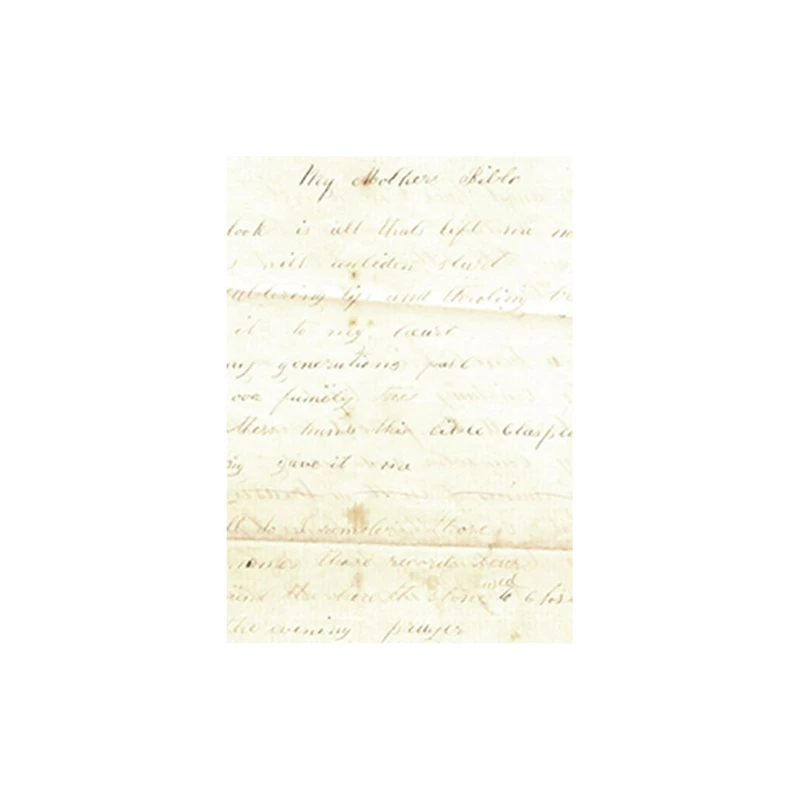 My Mothers Bible
look is all thats left me
will unbiden start
faltering lip and throbing
it to my heart
generations past
our family tree
hands this bible clasped
gave it me
do I remember those
names those records bear
the hearth stone used to
the evening prayer